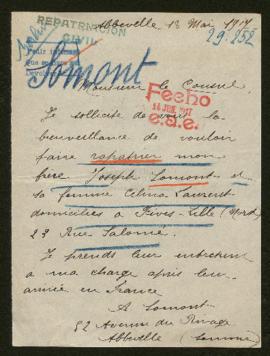 Abbeville 13 Mai 1917
REPATRIACION
CIVIL
29.252
Somont
Monsieur le Consul
Fecho
14 JUN. 1917
Je sollicite de vous la
bienveillance de vouloir
faire rapatrier mon
frère Joseph Somont et
sa femme Célina Laurent
domiciliés à Fives-Lille (Nord)
23 Rue Salomé.
Je prends leur entretient
a ma charge après leur
arrivée en France
A Somont
52 Avenue du Rivage
Abbeville (Somme)